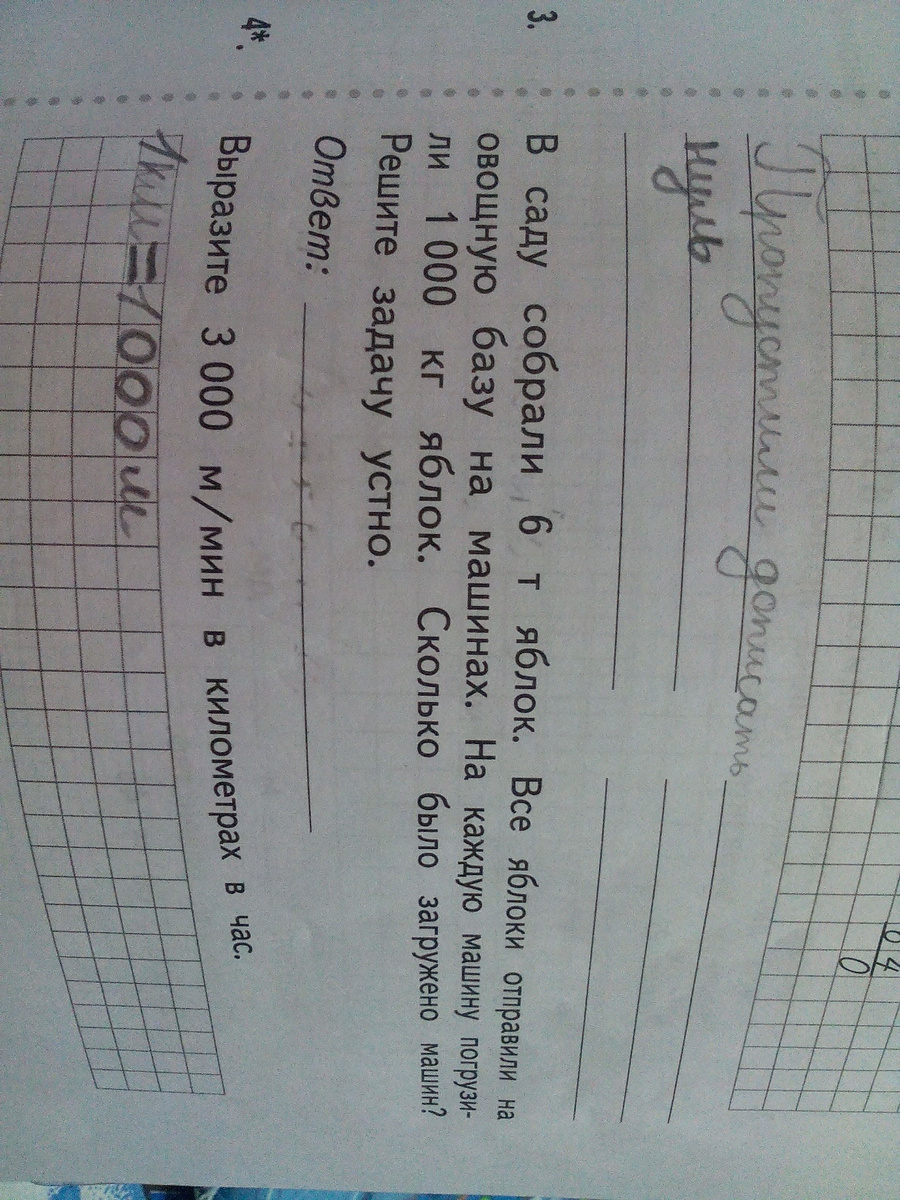 0 4
0
Пропустили дописать
нуль
3. В саду собрали 6 т яблок. Все яблоки отправили на
овощную базу на машинах. На каждую машину погрузи-
ли 1 000 кг яблок. Сколько было загружено машин?
Решите задачу устно.
Ответ:
4*. Выразите 3 000 м/мин в километрах в час.
1км=1000м